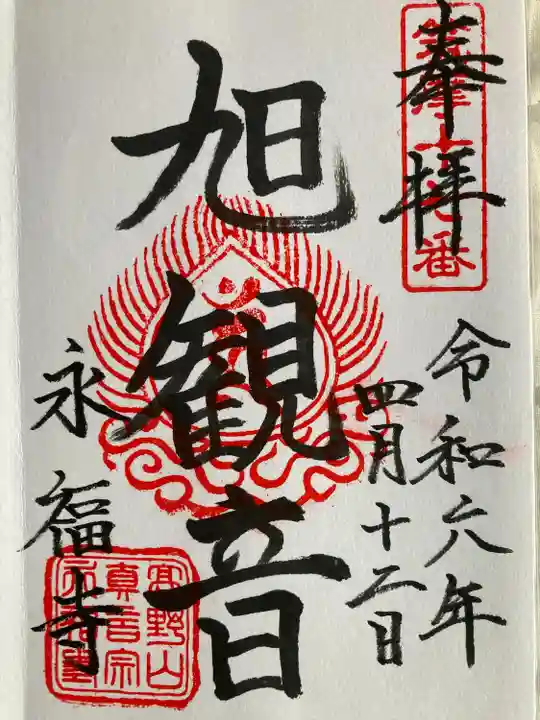 奉拝
令和六年
四月十二日
旭観音
永福寺
番
高野山
真言宗